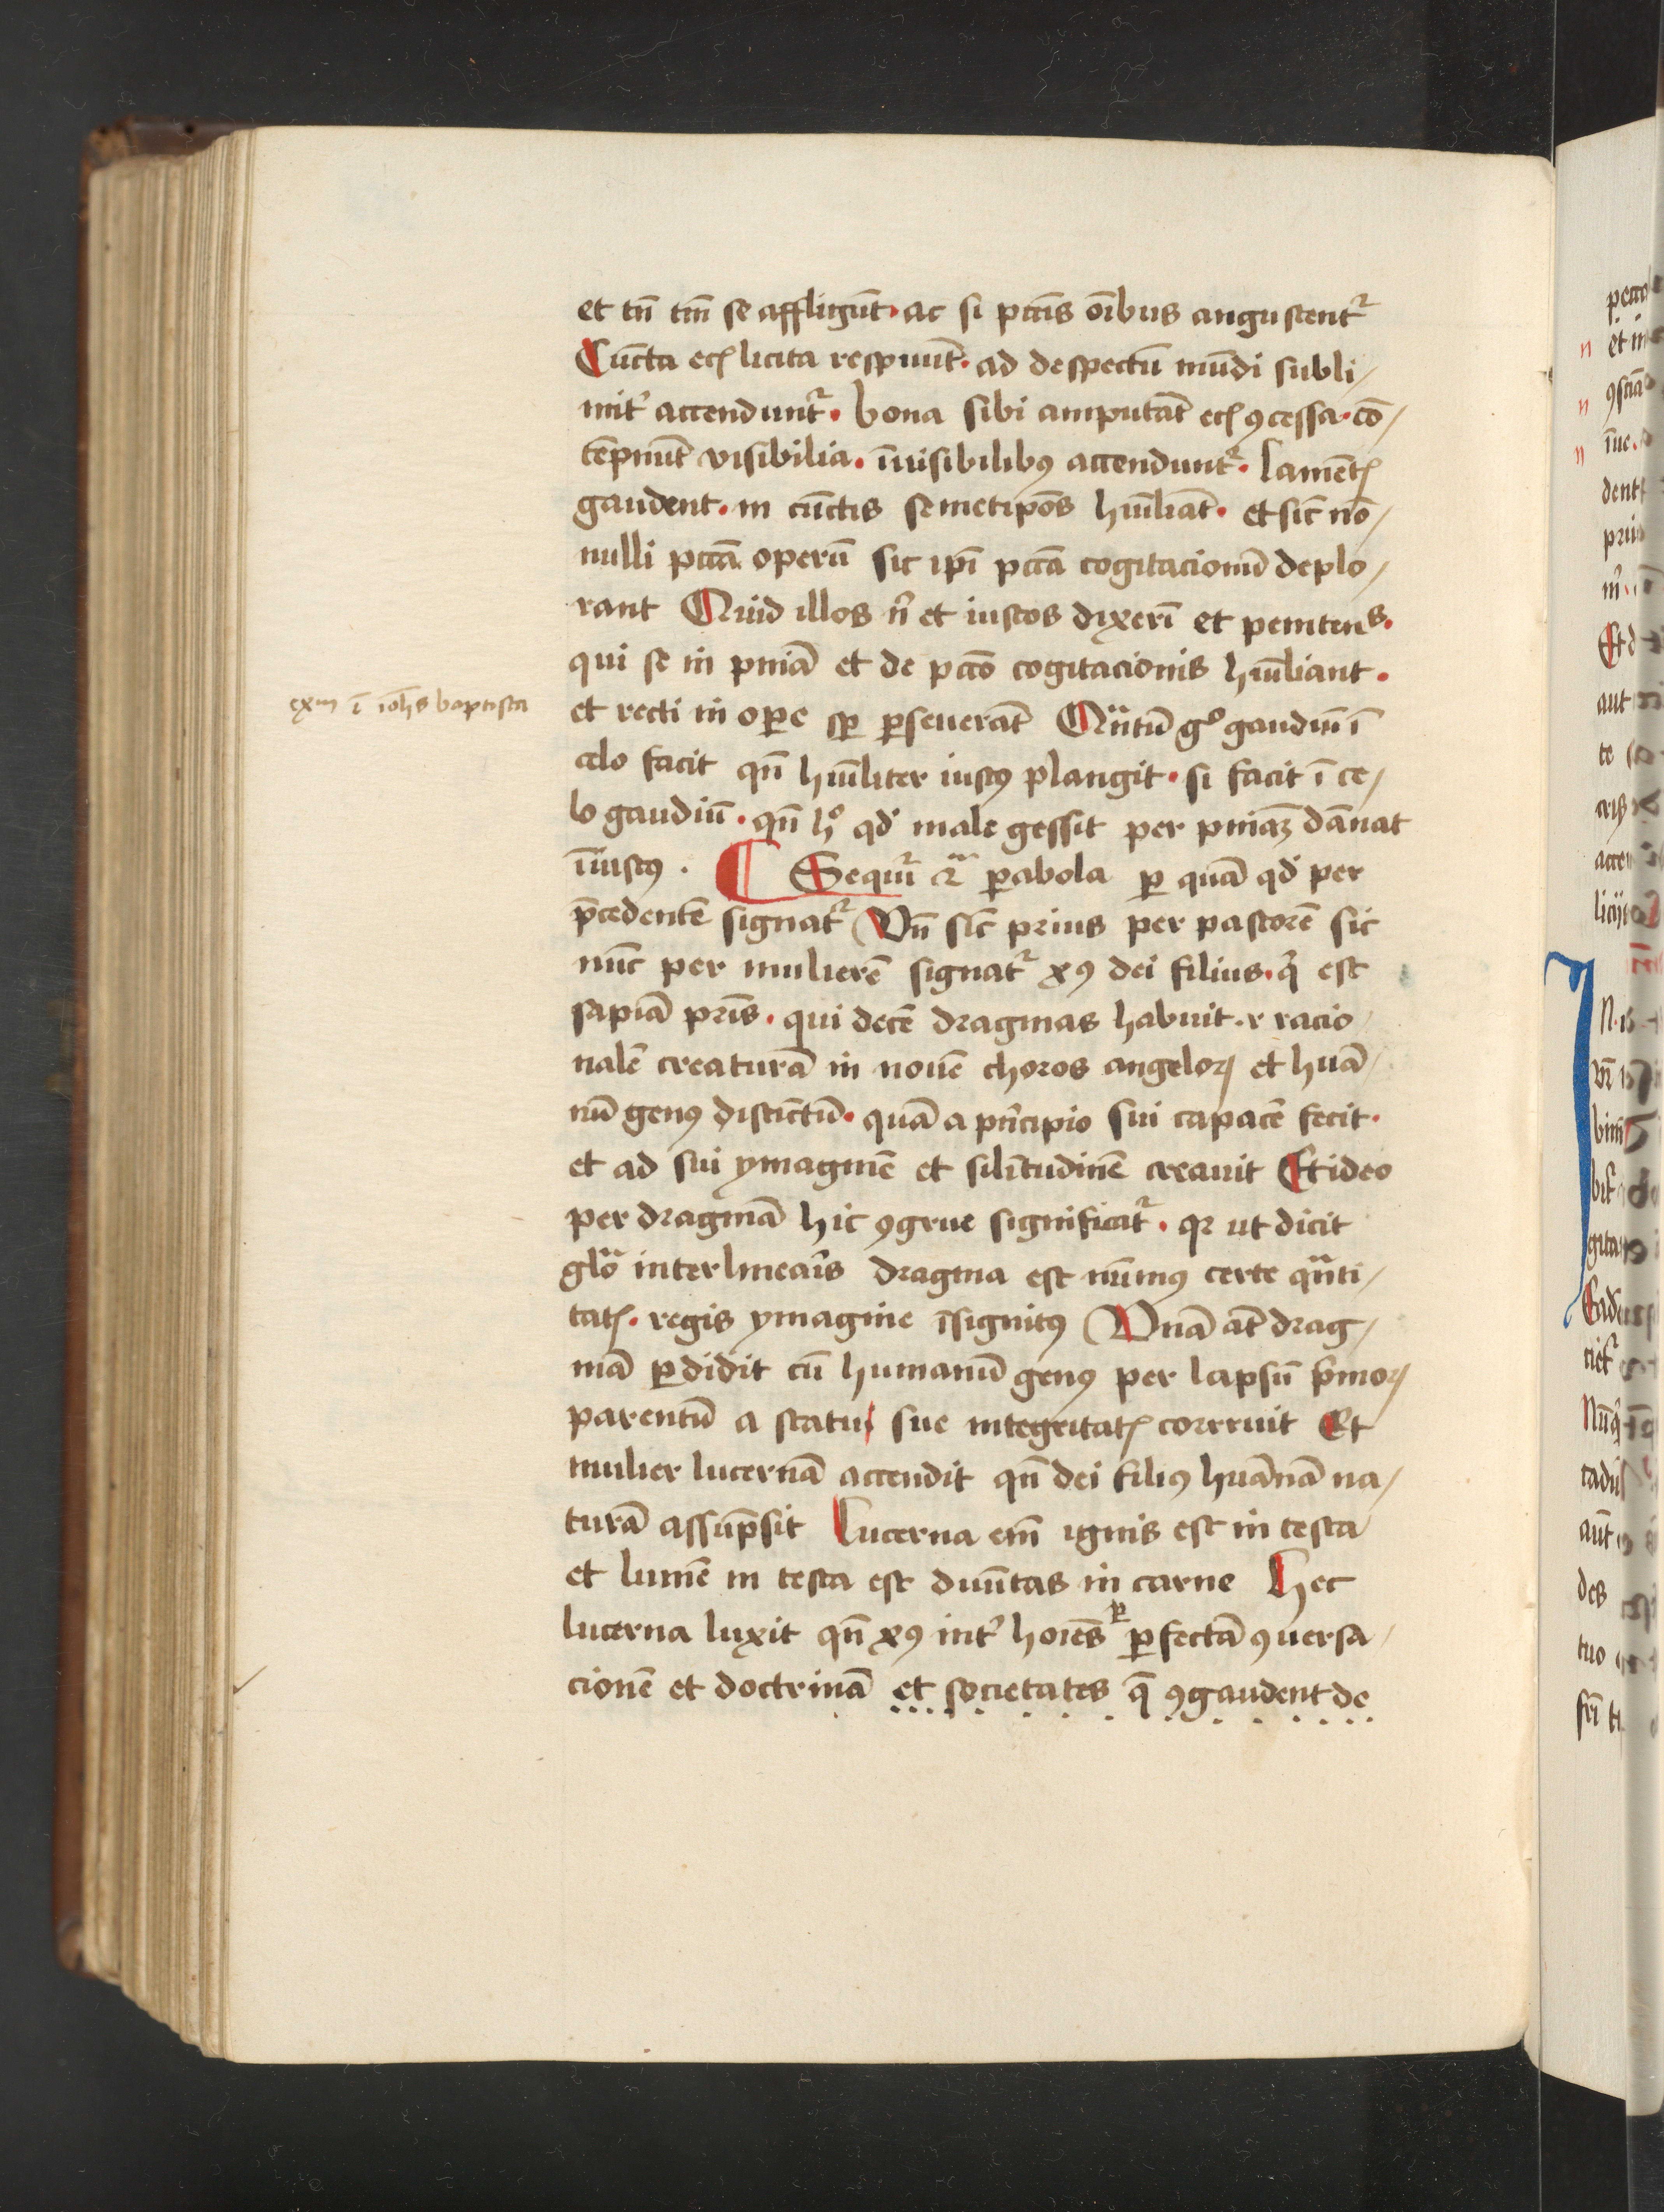 et tn̄ tm̄ se affligūt · ac si pctīs oībus angustent᷑
Cūcta ecꝭ licita respuūt · ad despectū mūdi subli/
mit᷑ accendunt᷑ · bona sibi amputāt ecꝭ ꝯcessa · cō/
tēpnūt visibilia · īuisibilibꝰ accendunt᷑ · lamētꝭ
gaudent · in cūctis semetipōs hūiliāt · et sic̄ nō/
nulli pctā operū sic ip̄i pctā cogitacionū deplo/
rant Quid illos n᷑ et iustos dixerī et penitens ·
qui se in pniā et de pctō cogitacionis hūiliant ·
exm ī ioh̄s baptista
et recti in oꝑe sꝑ ꝑseuerāt Qn̄tū gͦ gaudiū ī
celo facit qn̄ hūiliter iustꝰ plangit · si facit ī ce/
lo gaudiū · qn̄ hͦ qd᷑ male gessit per pniaꝫ dānat
īiustꝰ · Sequit᷑ ꝑabola ꝑ quā qd᷑ per
p̄cedentē signat᷑ Vn̄ sic̄ prius per pastorē sic
nūc per mulierē signat᷑ xꝰ dei filius · q᷑ est
sapiā pr̄is · qui decē dragmas habuit · r racio/
nalē creaturā in nouē choros angeloꝝ et huā/
nū genꝰ distīctū · quā a pn̄cipio sui capacē fecit ·
et ad sui ymaginē et silītudinē creauit Et ideo
per dragmā hic ꝯgrue significat᷑ · qꝛ ut dicit
glō interlinearīs dragma est nūmꝰ certe qn̄ti/
tatꝭ · regis ymagine īsignitꝰ Vnā āt drag/
mā ꝑdidit cū humanū genꝰ per lapsū p̄moꝝ
parentū a statu sue integritatꝭ corruit Et
mulier lucernā accendit qn̄ dei filiꝰ huānā na/
turā assūpsit Lucerna em̄ ignis est in testa
et lumē in testa est diuītas in carne Hec
lucerna luxit qn̄ xꝰ int᷑ hoīes ꝑ ꝑfectā ꝯuersa/
cionē et doctrinā et societates q̄ ꝯgaudent de